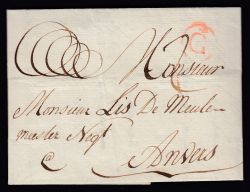 Monsieur
C
Monsieur Lis De Meule-
mester Negt
Anvers